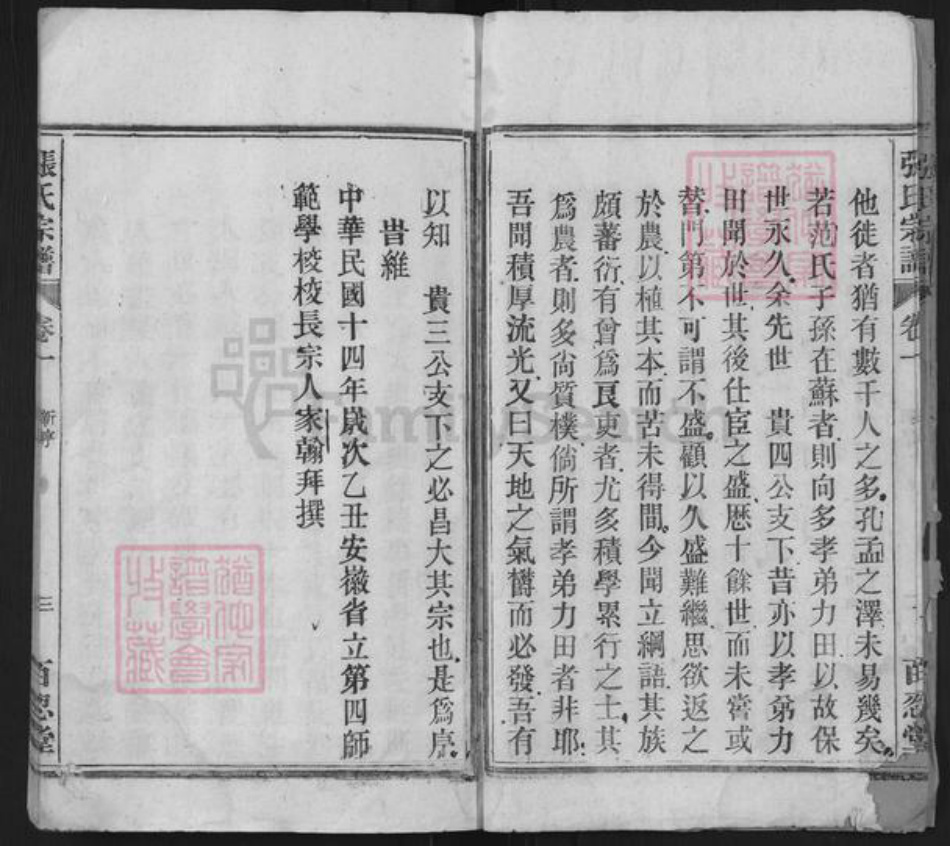 張氏宗譜 卷一 百忍堂
他徒者猶有數千人之多孔孟之澤未易幾矣
若范氏子孫在蘇者則向多孝弟力田以故保
世永久余先世 貴四公支下昔亦以孝弟力
田聞於世其後仕宦之盛歷十餘世而未嘗或
替門第不可謂不盛顧以久盛難繼思欲返之
於農以植其本而苦未得間今聞立綱語其族
頗蕃衍有曾爲良吏者尤多積學累行之士其
爲農者則多尙質樸倘所謂孝弟力田者非耶
吾聞積厚流光又曰天地之氣欝而必發吾有
以知 貴三公支下之必昌大其宗也是爲序
旹維
中華民國十四年歲次乙丑安徽省立第四師
範學校校長宗人家翰拜撰
張氏宗譜 卷一 新譜 三 百忍堂
FamilySearch